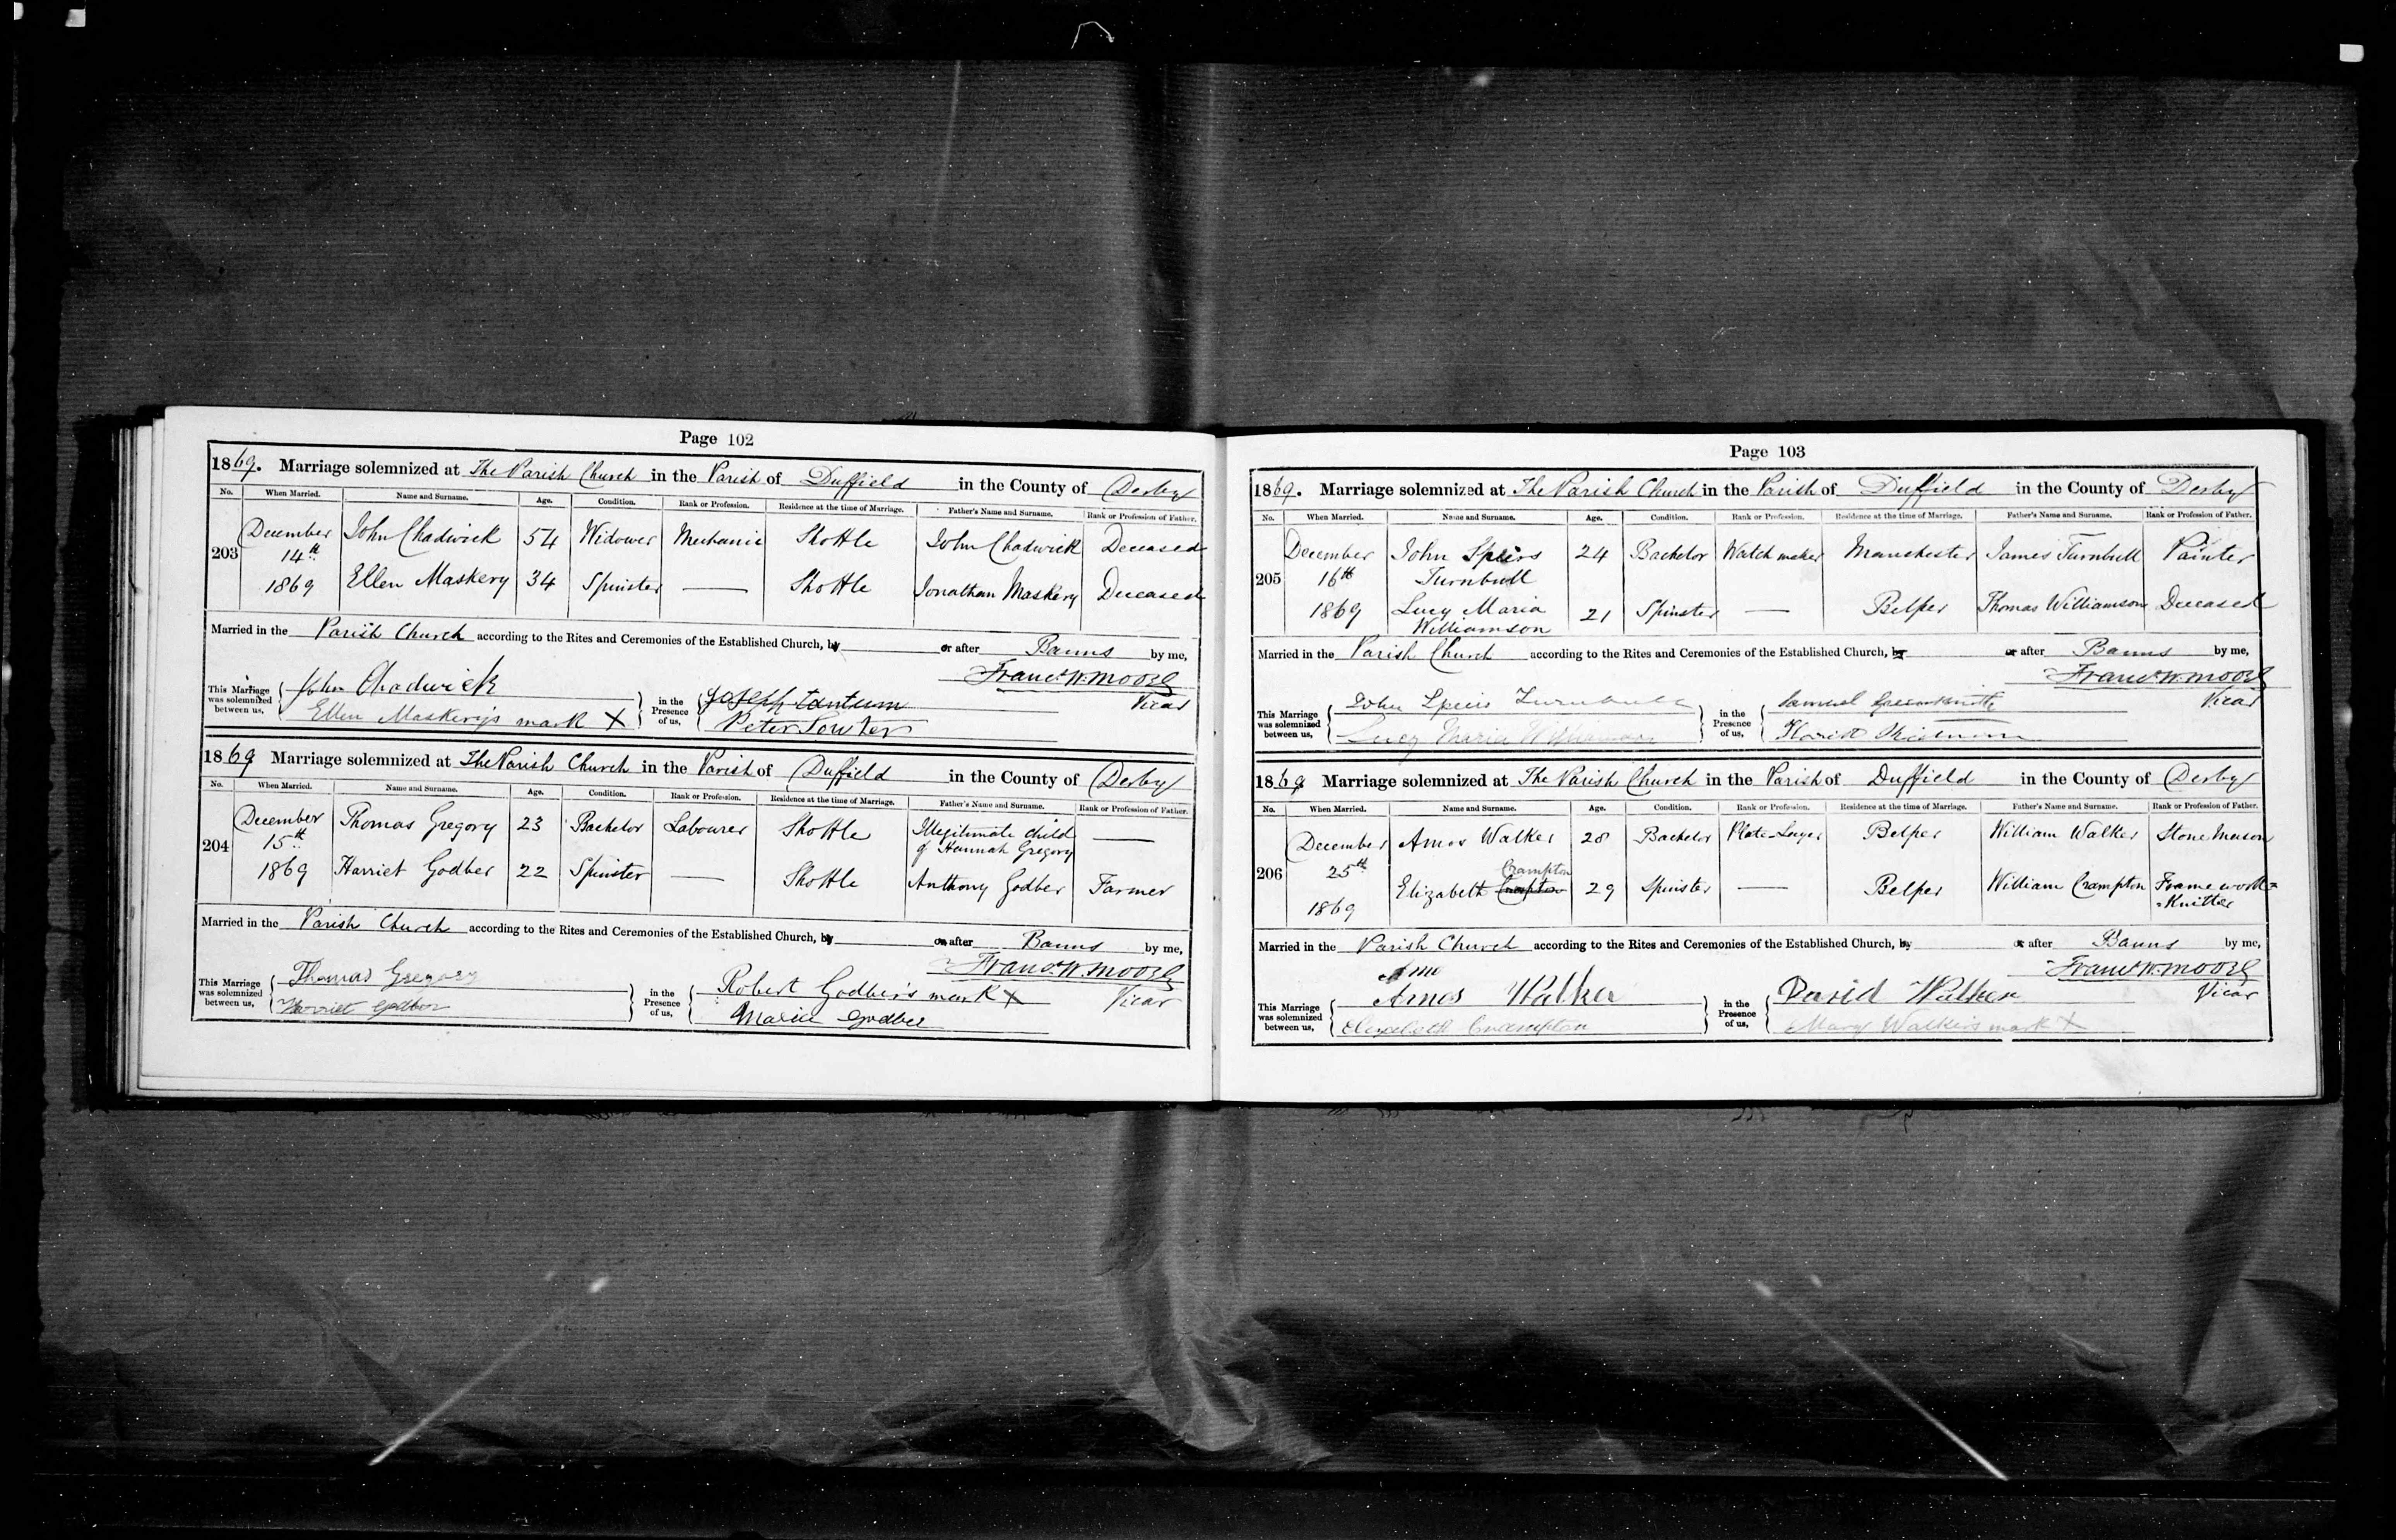 Page 102
1869. Marriage solemnized at The Parish Church in the Parish of Duffield in the County of Derby
No. When Married. Name and Surname. Age. Condition. Rank or Profession. Residence at the time of Marriage. Father's Name and Surname. Rank or Profession of Father.
203 December 14th 1869 John Chadwick 54 Widower Mechanic Shottle John Chadwick Deceased
Ellen Maskery 34 Spinster — Shottle Jonathan Maskery Deceased
Married in the Parish Church according to the Rites and Ceremonies of the Established Church, by or after Banns by me,
Francs. W. Moore
Vicar
This Marriage was solemnized between us, John Chadwick in the Presence of us, Joseph Tantum
Ellen Maskery's mark X Peter Fowler
1869 Marriage solemnized at The Parish Church in the Parish of Duffield in the County of Derby
No. When Married. Name and Surname. Age. Condition. Rank or Profession. Residence at the time of Marriage. Father's Name and Surname. Rank or Profession of Father.
204 December 15th 1869 Thomas Gregory 23 Bachelor Labourer Shottle Illegitimate child of Hannah Gregory —
Harriet Godber 22 Spinster — Shottle Anthony Godber Farmer
Married in the Parish Church according to the Rites and Ceremonies of the Established Church, by or after Banns by me,
Francs. W. Moore
Vicar
This Marriage was solemnized between us, Thomas Gregory in the Presence of us, Robert Godber's mark X
Harriet Godber Maria Godber
Page 103
1869. Marriage solemnized at The Parish Church in the Parish of Duffield in the County of Derby
No. When Married. Name and Surname. Age. Condition. Rank or Profession. Residence at the time of Marriage. Father's Name and Surname. Rank or Profession of Father.
205 December 16th 1869 John Speirs Turnbull 24 Bachelor Watch maker Manchester James Turnbull Painter
Lucy Maria Williamson 21 Spinster — Belper Thomas Williamson Deceased
Married in the Parish Church according to the Rites and Ceremonies of the Established Church, by or after Banns by me,
Francs. W. Moore
Vicar
This Marriage was solemnized between us, John Speirs Turnbull in the Presence of us, Samuel
Lucy Maria Williamson
1869 Marriage solemnized at The Parish Church in the Parish of Duffield in the County of Derby
No. When Married. Name and Surname. Age. Condition. Rank or Profession. Residence at the time of Marriage. Father's Name and Surname. Rank or Profession of Father.
206 December 25th 1869 Amos Walker 28 Bachelor Plate-Layer Belper William Walker Stone Mason
Elizabeth Crampton 29 Spinster — Belper William Crampton Framework=
=Knitter
Married in the Parish Church according to the Rites and Ceremonies of the Established Church, by or after Banns by me,
Francs. W. Moore
Vicar
Amo
This Marriage was solemnized between us, Amos Walker in the Presence of us, David Walker
Elizabeth Crampton Mary Walker's mark X